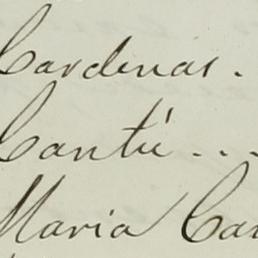 Cardenas.
Cantú...
Maria Ca